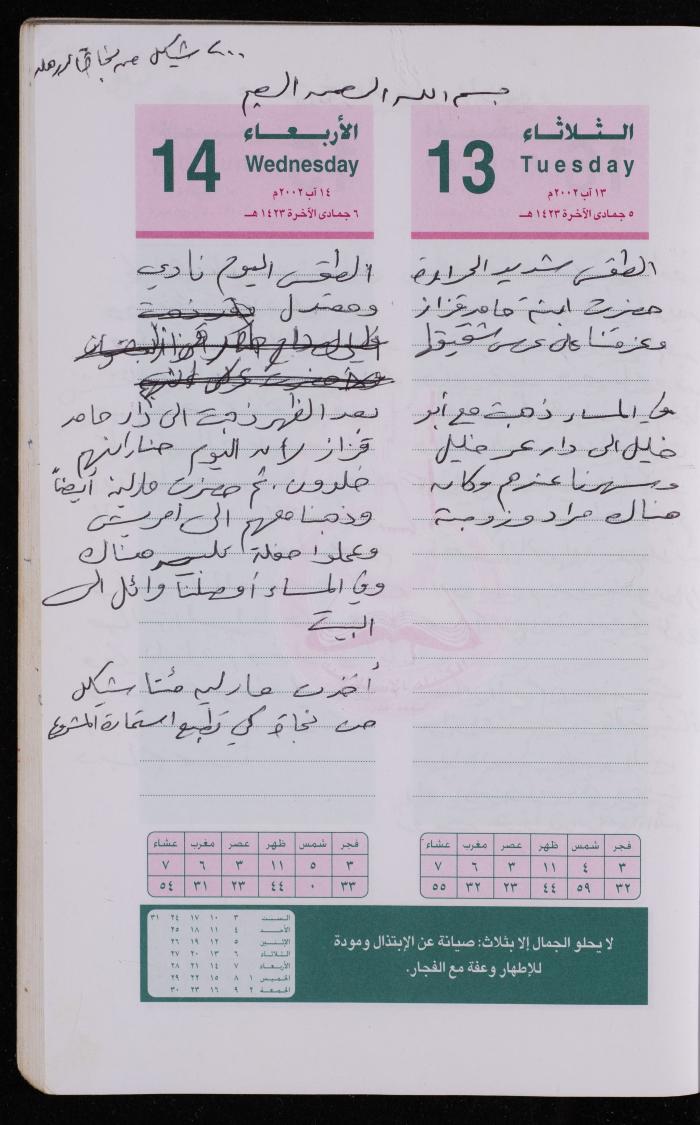 ٢٠٠ شيكل من نجاة
بسم الله الرحمن الرحيم
الثلاثاء
13 Tuesday
١٣ آب ٢٠٠٢م
٥ جمادى الآخرة ١٤٢٣ هـ
الطقس شديد الحرارة
حضرت ابنة حامد قزاز
وعزمتنا على عرس شقيقها
في المساء ذهبت مع أبو
خليل الى دار عمر خليل
وسهرنا عندهم وكان
هناك مراد وزوجته
فجر شمس ظهر عصر مغرب عشاء
٣ ٤ ١١ ٣ ٦ ٧
٣٢ ٥٩ ٤٤ ٢٣ ٣٢ ٥٥
الأربعاء
14 Wednesday
١٤ آب ٢٠٠٢م
٦ جمادى الآخرة ١٤٢٣ هـ
الطقس اليوم نادي
ومعتدل
بعد الظهر ذهبت الى دار حامد
قزاز لأن اليوم
خلدون. ثم حضرت مارلين أيضاً
وذهبنا معهم الى
وعملوا حفلة هناك
وفي المساء أوصلنا وائل الى
البيت
أخذت مارلين مئتا شيكل
من نجاة كي تطبع استمارة المشروع
فجر شمس ظهر عصر مغرب عشاء
٣ ٥ ١١ ٣ ٦ ٧
٣٣ ٠ ٤٤ ٢٣ ٣١ ٥٤
لا يحلو الجمال إلا بثلاث: صيانة عن الإبتذال ومودة
للإطهار وعفة مع الفجار.
السبت ٣ ١٠ ١٧ ٢٤ ٣١
الأحد ٤ ١١ ١٨ ٢٥
الإثنين ٥ ١٢ ١٩ ٢٦
الثلاثاء ٦ ١٣ ٢٠ ٢٧
الأربعاء ٧ ١٤ ٢١ ٢٨
الخميس ١ ٨ ١٥ ٢٢ ٢٩
الجمعة ٢ ٩ ١٦ ٢٣ ٣٠